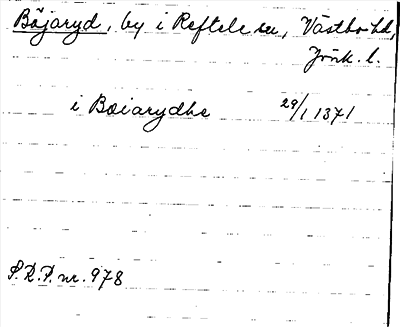 Böjaryd, by i Reftele sn, Västbo hd,
Jönk. l.
i Bœiarydhe 29/1 1371
S.R.P. nr. 978